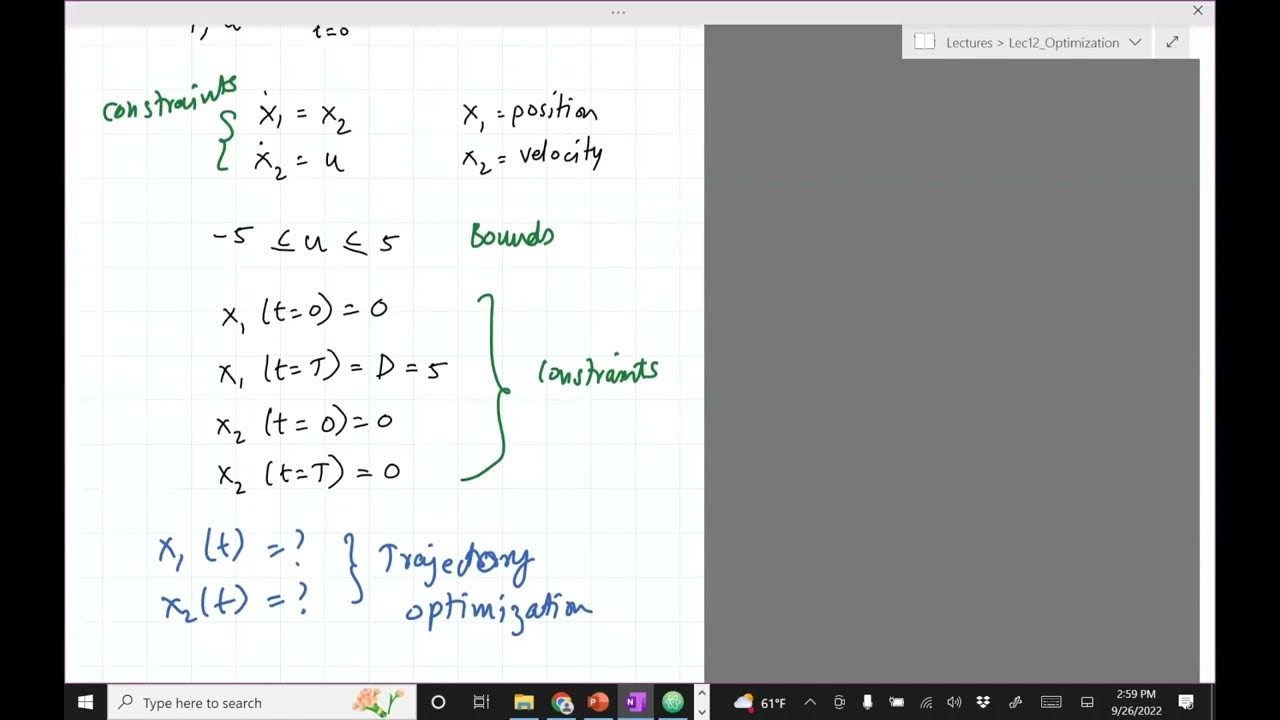 Lectures > Lec12_Optimization
t=0
constraints
ẋ₁ = x₂ x₁ = position
ẋ₂ = u x₂ = velocity
-5 ≤ u ≤ 5 Bounds
x₁ (t=0) = 0
x₁ (t=T) = D = 5
constraints
x₂ (t=0) = 0
x₂ (t=T) = 0
x₁ (t) = ? Trajectory
x₂ (t) = ? optimization
Type here to search
61°F
2:59 PM
9/26/2022